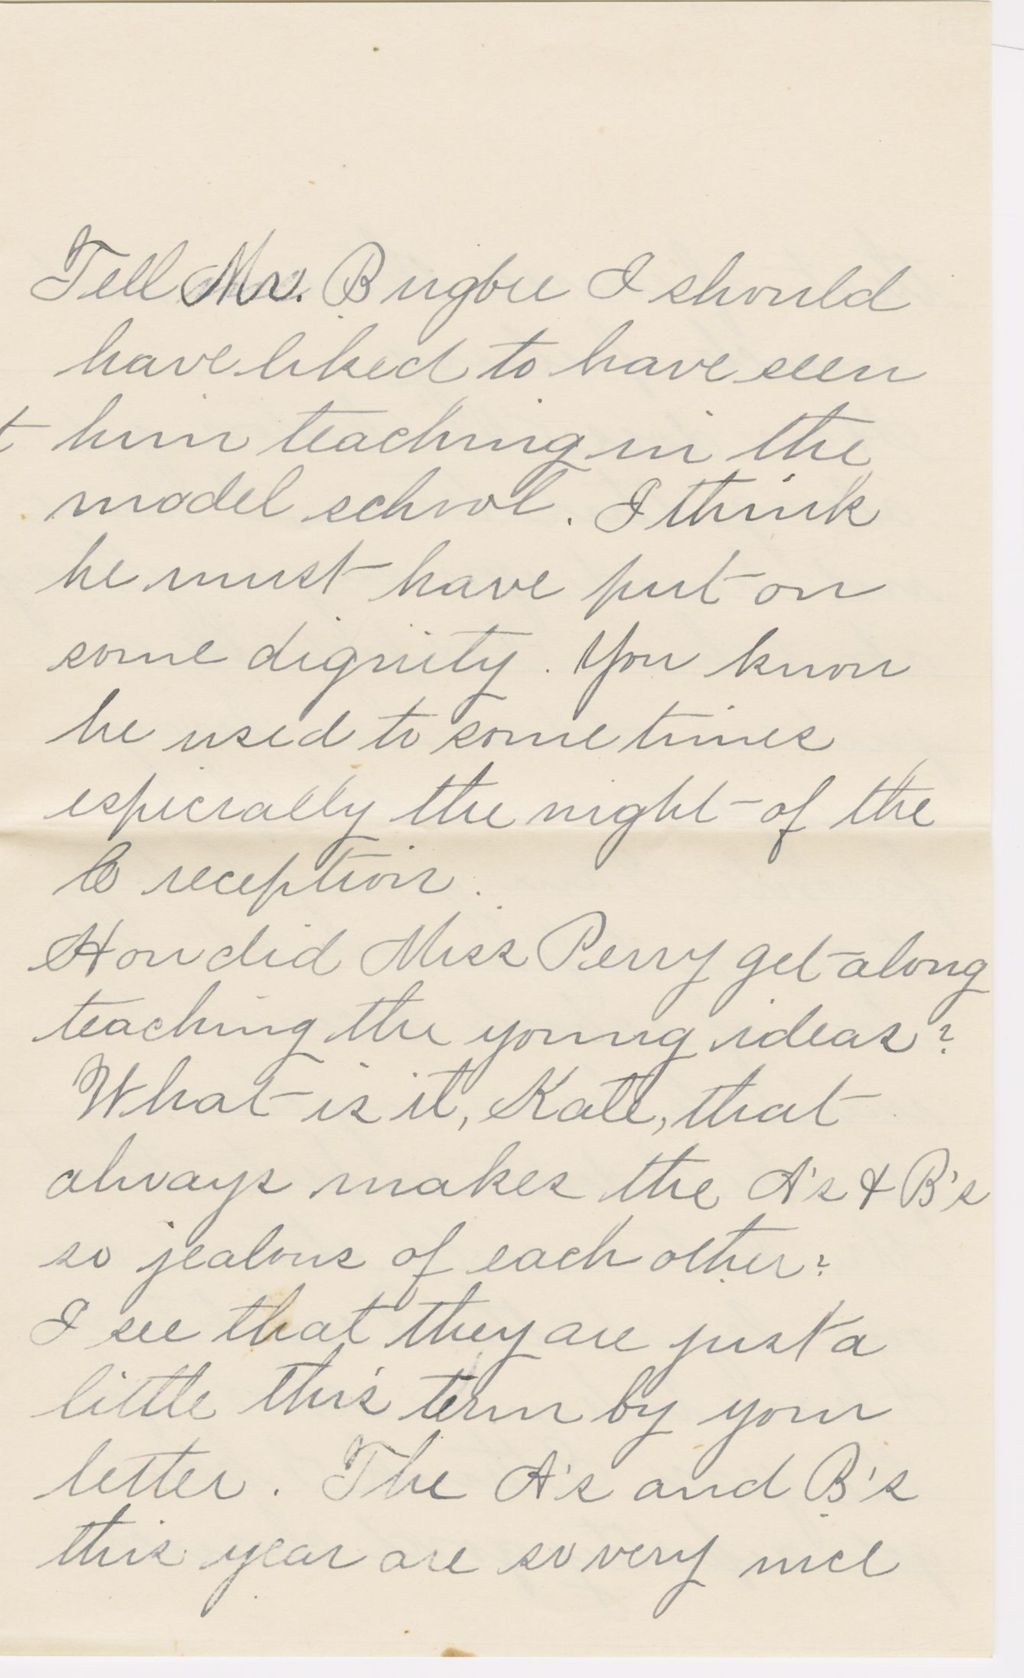 Tell Mr. Bugbee I should
have liked to have seen
him teaching in the
model school. I think
he must have put on
some dignity. You know
he used to sometimes
especially the night of the
C reception.
How did Miss Perry get along
teaching the young ideas?
What is it, Kate, that
always makes the A's & B's
so jealous of each other?
I see that they are just a
little this term by your
letter. The A's and B's
this year are so very nice